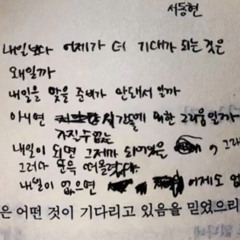 서동현
내일보다 어제가 더 기대가 되는 것은
왜일까
내일을 맞을 준비가 안돼서 일까
아니면 시간들에 의한 그리움일까
가질수 없는
내일이 되면 그제가 되어있을 그
그러다 문득 떠올랐다
내일이 없으면 어제도 없
은 어떤 것이 기다리고 있음을 믿었으리